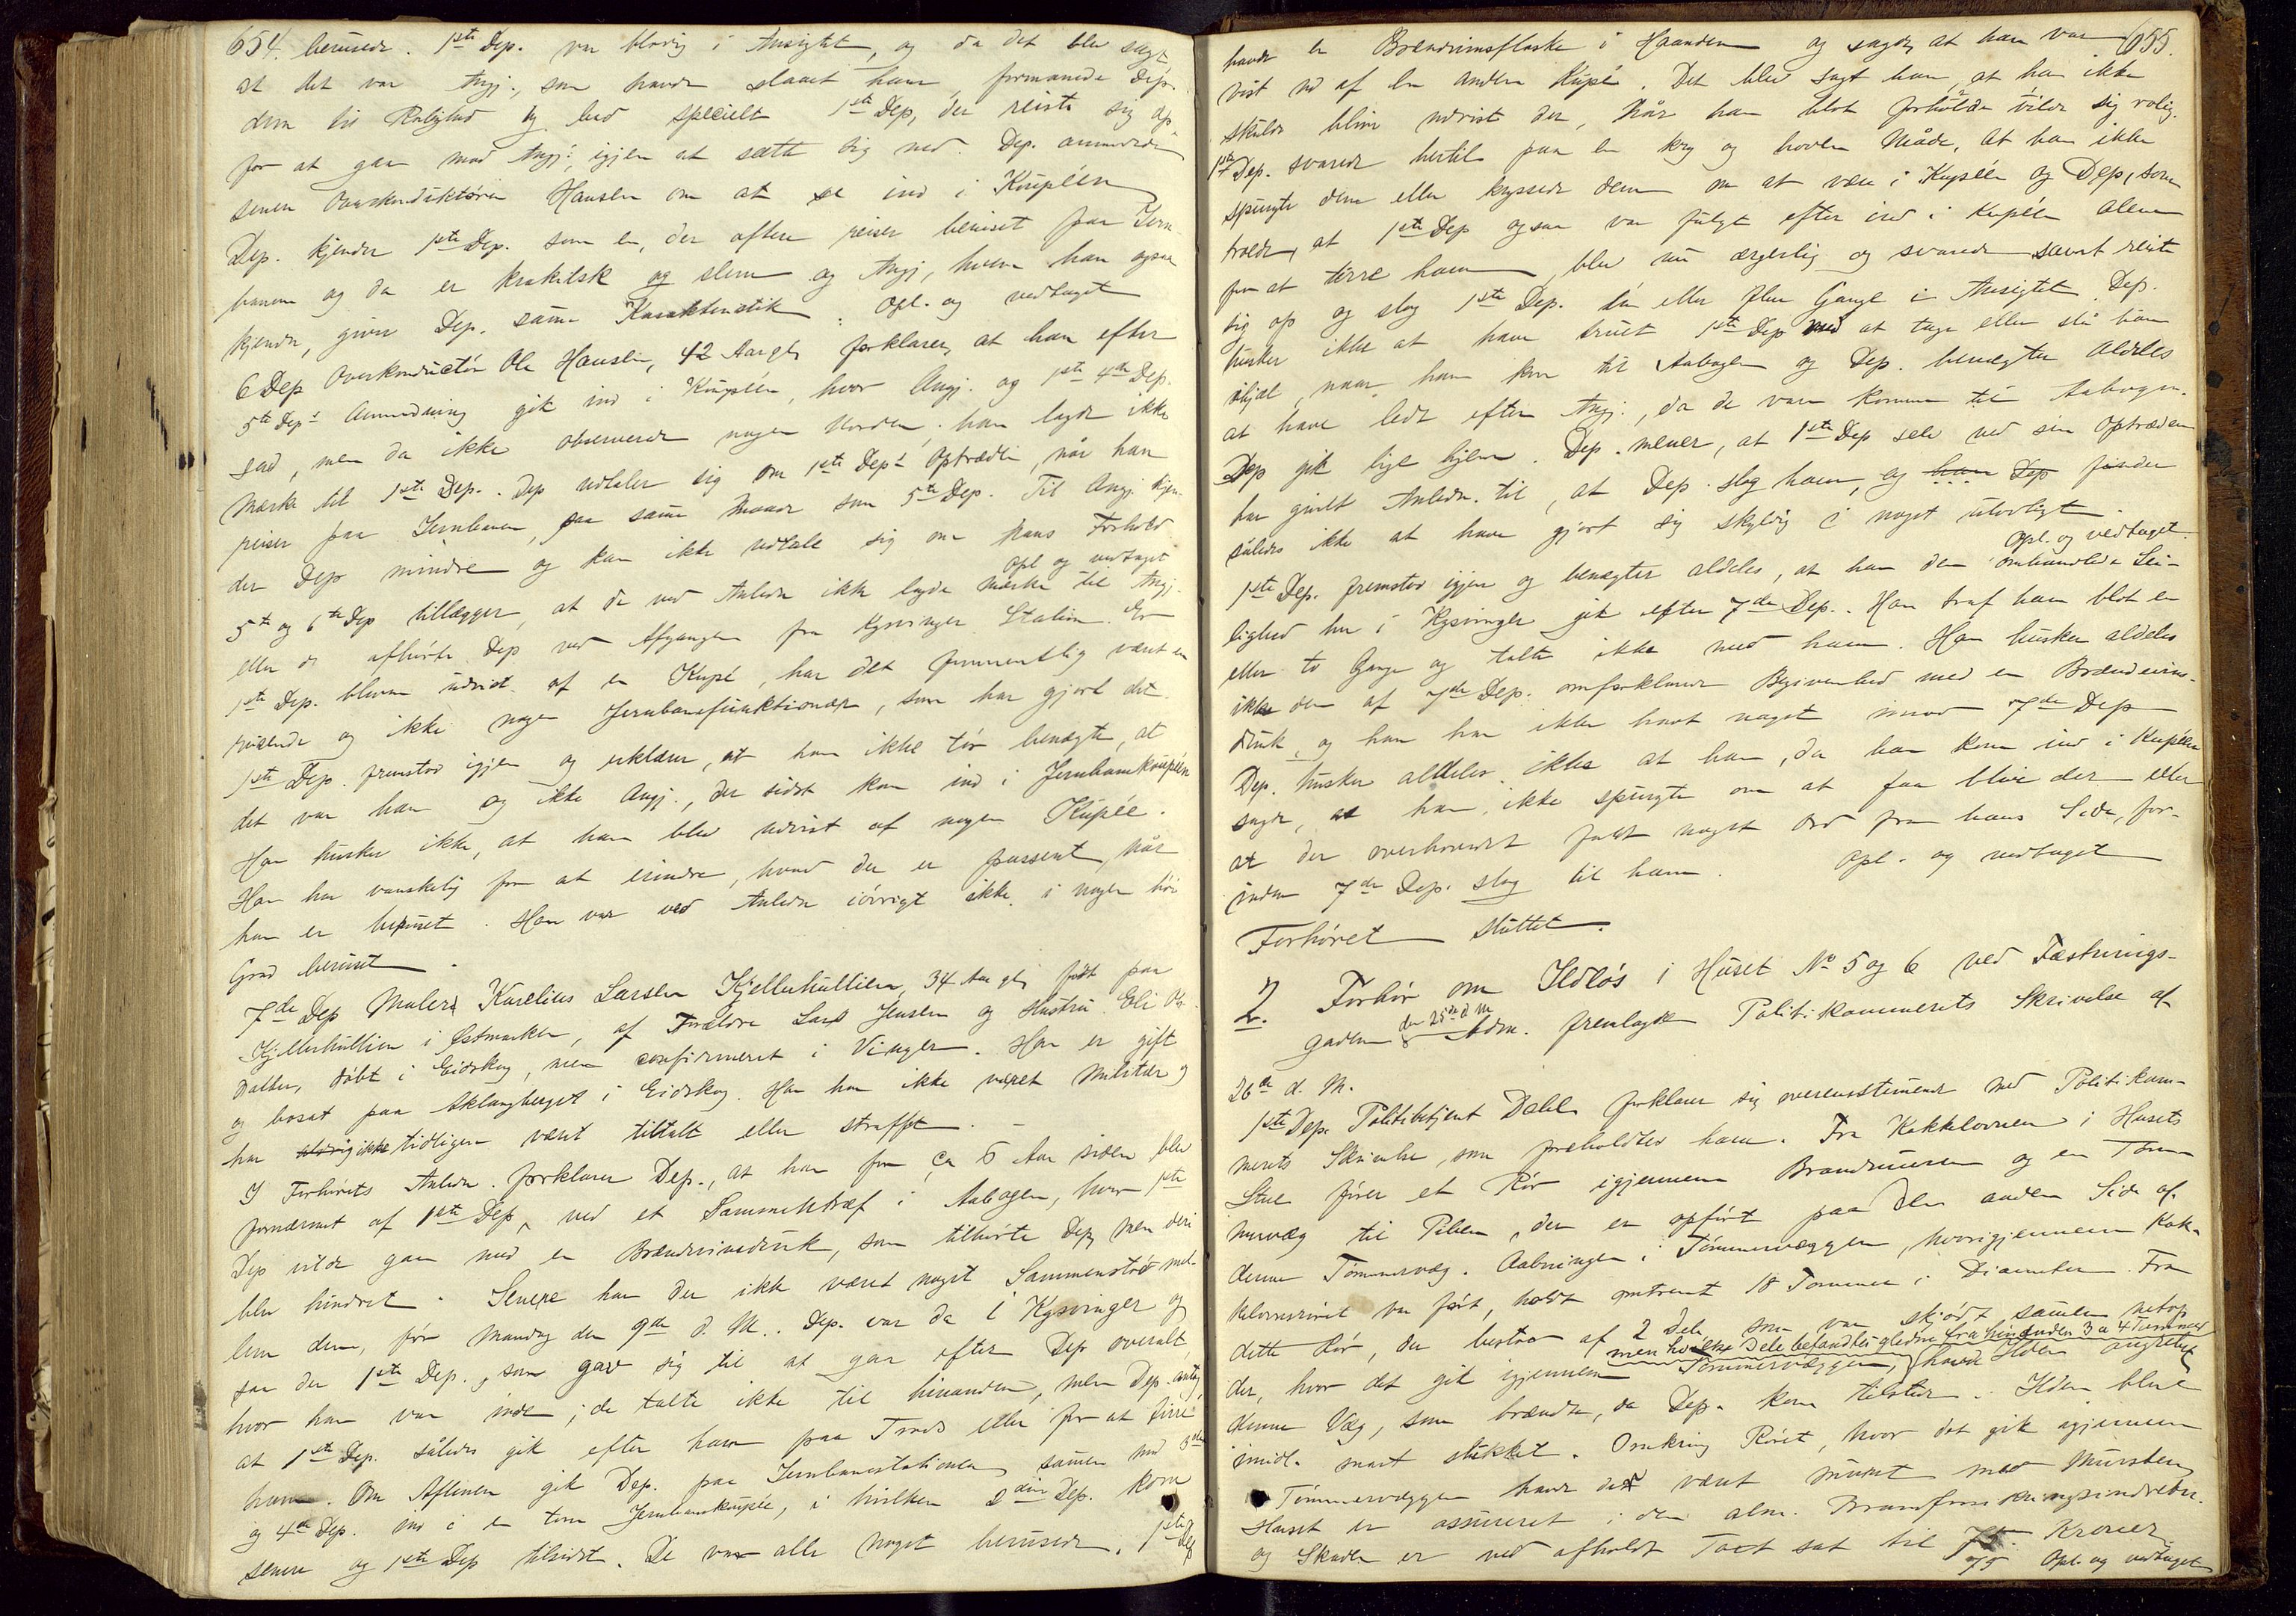 654. berusede. 1ste Dep. var blodig i Ansigtet, og da det blev sagt,
at det var Angj., som havde slaaet ham, formanede Dep.
dem til Rolighed og bad specielt 1ste Dep., der reiste sig op
for at gaa mod Angj. igjen at sætte sig ned. Dep. anmodede
senere Overkonduktøren Hansen om at se ind i Kupéen
Dep. kjender 1ste Dep. som en, der oftere reiser beruset paa Jern-
banen og da er krakilsk og slem og Angj., hvem han ogsaa
kjender, giver Dep. samme Karakteristik. Opl. og vedtaget
6 Dep Overkonductør Ole Hansen, 42 Aar gl. forklarer, at han efter
5te Dep's Anmodning gik ind i Kupéen, hvor Angj. og 1ste 4de Dep.
sad, men da ikke observerede nogen Uorden; han lagde ikke
Mærke til 1ste Dep.. Dep udtaler sig om 1ste Dep's Optræden, når han
reiser paa Jernbanen, paa samme Maade som 5te Dep. Til Angj. kjen-
der Dep mindre og kan ikke udtale sig om hans Forhold
Opl og vedtaget
5te og 6te Dep tillægger, at de ved Anledn ikke lagde Mærke til Angj.
eller de afhørte Dep ved Afgangen fra Kongsvinger Station. Er
1ste Dep. bleven udvist af en Kupé, har det formentlig været en
reisende og ikke nogen Jernbanefunktionær, som har gjort det.
1ste Dep. fremstod igjen og erklærer, at han ikke tør benægte, at
det var han og ikke Angj., der sidst kom ind i Jernbanekupéen
Han husker ikke, at han blev udvist af nogen Kupée.
Han har vanskelig for at erindre, hvad der er passeret, når
han er beruset. Han var ved Anledn iøvrigt ikke i nogen høi
Grad beruset.
7de Dep Maler Karelius Larsen Kjellerhultlien, 34 Aar gl, født paa
Kjellerhultlien i Østmarken, af Forældre Lars Jensen og Hustru Eli Ols-
datter, døbt i Eidskog, men confirmeret i Vinger. Han er gift
og bosat paa Aklangberget i Eidskog. Han har ikke været Militær og
har aldrig ikke tidligere været tiltalt eller straffet.
I Forhørets Anledn. forklarer Dep., at han for ca 6 Aar siden blev
fornærmet af 1ste Dep, ved et Sammentræf i Aabogen, hvor 1ste
Dep vilde gaa med en Brændevinsdunk, som tilhørte Dep, men deri
blev hindret. Senere har der ikke været noget Sammenstød mel-
lem dem, før Mandag den 9de d. M.. Dep. var da i Kgsvinger og
saa der 1ste Dep., som gav sig til at gaa efter Dep overalt,
hvor han var inde; de talte ikke til hinanden, men Dep. antog,
at 1ste Dep. således gik efter ham paa Trods eller for at tirre
ham. Om Aftenen gik Dep. paa Jernbanestationen sammen med 3die
og 4de Dep. ind i en tom Jernbanekupée, i hvilken 2den Dep. kom
senere og 1ste Dep tilsidst. De var alle noget berusede. 1ste Dep
655.
havde en Brændevinsflaske i Haanden og sagde, at han var
vist ud af en anden Kupé. Det blev sagt ham, at han ikke
skulde blive udvist der, Når han blot forholde vilde sig rolig.
1ste Dep. svarede hertil paa en kry og hoven Måde, at han ikke
spurgte dem eller kyssede dem om at være i Kupéen og Dep, som
troede, at 1ste Dep ogsaa var fulgt efter ind i Kupéen alene
for at tirre ham, blev nu ærgerlig og svarede samt reiste
sig op og slog 1ste Dep. én eller flere Gange i Ansigtet. Dep.
husker ikke at have truet 1ste Dep med at tage eller slå ham
ihjel, naar han kom til Aabogen og Dep. benægter aldeles
at have ledt efter Angj., da de vare komne til Aabogen.
Dep gik lige hjem. Dep. mener, at 1ste Dep selv ved sin Optræden
har givet Anledn. til, at Dep. slog ham, og han Dep finder
således ikke at have gjort sig skyldig i noget ulovligt.
Opl. og vedtaget.
1ste Dep. fremstod igjen og benægter aldeles, at han den omhandlede Lei-
lighed her i Kgsvinger gik efter 7de Dep.. Han traf ham blot en
eller to Gange og talte ikke med ham. Han husker aldeles
ikke den af 7de Dep. omforklarede Begivenhed med en Brændevins-
dunk, og han har ikke havt noget imod 7de Dep
Dep. husker aldeles ikke at han, da han kom ind i Kupéen
sagde, at han ikke spurgte om at faa blive der eller
at der overhovedet faldt noget Ord fra hans Side, for-
inden 7de Dep. slog til ham. Opl. og vedtaget
Forhøret sluttet.
2. Forhør om Ildløs i Huset No 5 og 6 ved Fæstnings-
gaden den 25de d M Adm. fremlagde Politikammerets Skrivelse af
26de d. M.
1ste Dep. Politibetjent Dahl forklarer sig overensstemmende med Politikam-
merets Skrivelse, som foreholdtes ham. Fra Kakkelovnen i Husets
Stue fører et Rør igjennem Brandmuren og en Tøm-
mervæg til Piben, der er opført paa den anden Side af
denne Tømmervæg. Aabningen i Tømmervæggen, hvorigjennem Kak-
kelovnsrøret var ført, holdt omtrent 18 Tommer i Diameter. Fra
dette Rør, der bestod af 2 Dele som var skjødt sammen netop
men hvis Dele befandtes gledne fra hinanden 3 a 4 Tommer
der, hvor det gik igjennem Tømmervæggen, havde Ilden angrebet
denne Væg, som brændte, da Dep. kom tilstede. Ilden blev
imidl. snart slukket. Omkring Røret, hvor det gik igjennem
Tømmervæggen havde der været muret med Mursten
Huset er assureret i den alm. Brandforsikringsindretn.
og Skaden er ved afholdt Taxt sat til 75 Kroner
75 Opl. og vedtaget